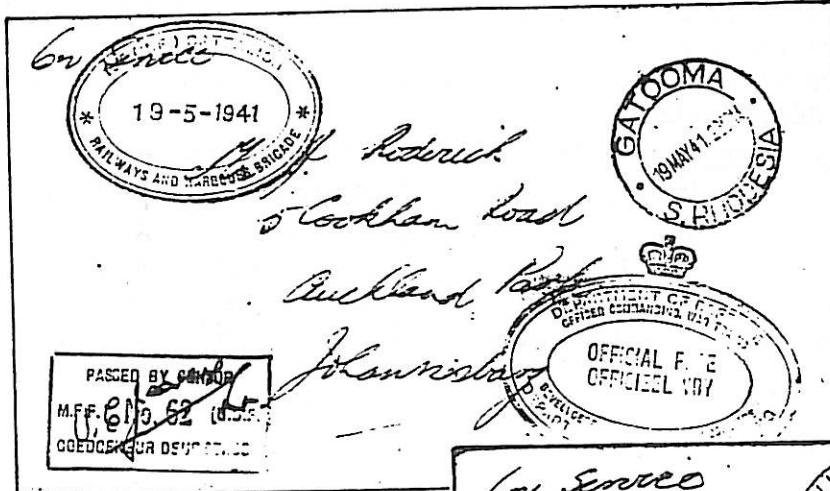 On Service
BATTALION
19-5-1941
RAILWAYS AND HARBOURS BRIGADE
GATOOMA
19 MAY 41
S. RHODESIA
Roderick
5 Cookham Road
Auckland Park
Johannesburg
DEPARTMENT OF
OFFICER COMMANDING,
OFFICIAL F E
OFFICIEEL VRY
PASSED BY
M.F.F. No. 62
GOEDGEKEUR DEUR
On Service